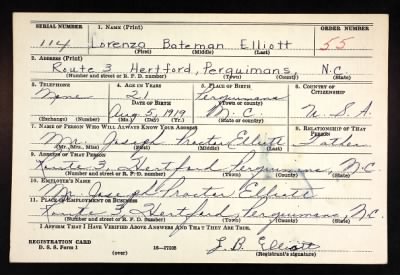 SERIAL NUMBER 1. NAME (Print) ORDER NUMBER
114 Lorenza Bateman Elliott 55
(First) (Middle) (Last)
2. ADDRESS (Print)
Route 3 Hertford, Perquimans, N.C.
(Number and street or R. F. D. number) (Town) (County) (State)
3. TELEPHONE 4. AGE IN YEARS 5. PLACE OF BIRTH 6. COUNTRY OF CITIZENSHIP
None 21 Perquimans
DATE OF BIRTH (Town or county)
Aug 5, 1919 N.C. U.S.A.
(Exchange) (Number) (Mo.) (Day) (Yr.) (State or country)
7. NAME OF PERSON WHO WILL ALWAYS KNOW YOUR ADDRESS 8. RELATIONSHIP OF THAT PERSON
Mr. Joseph Proctor Elliott Father
(Mr., Mrs., Miss) (First) (Middle) (Last)
9. ADDRESS OF THAT PERSON
Route 3 Hertford Perquimans, N.C.
(Number and street or R. F. D. number) (Town) (County) (State)
10. EMPLOYER'S NAME
Mr. Joseph Proctor Elliott
11. PLACE OF EMPLOYMENT OR BUSINESS
Route 3 Hertford Perquimans, N.C.
(Number and street or R. F. D. number) (Town) (County) (State)
I AFFIRM THAT I HAVE VERIFIED ABOVE ANSWERS AND THAT THEY ARE TRUE.
REGISTRATION CARD L. B. Elliott
D. S. S. Form 1 (over) (Registrant's signature)